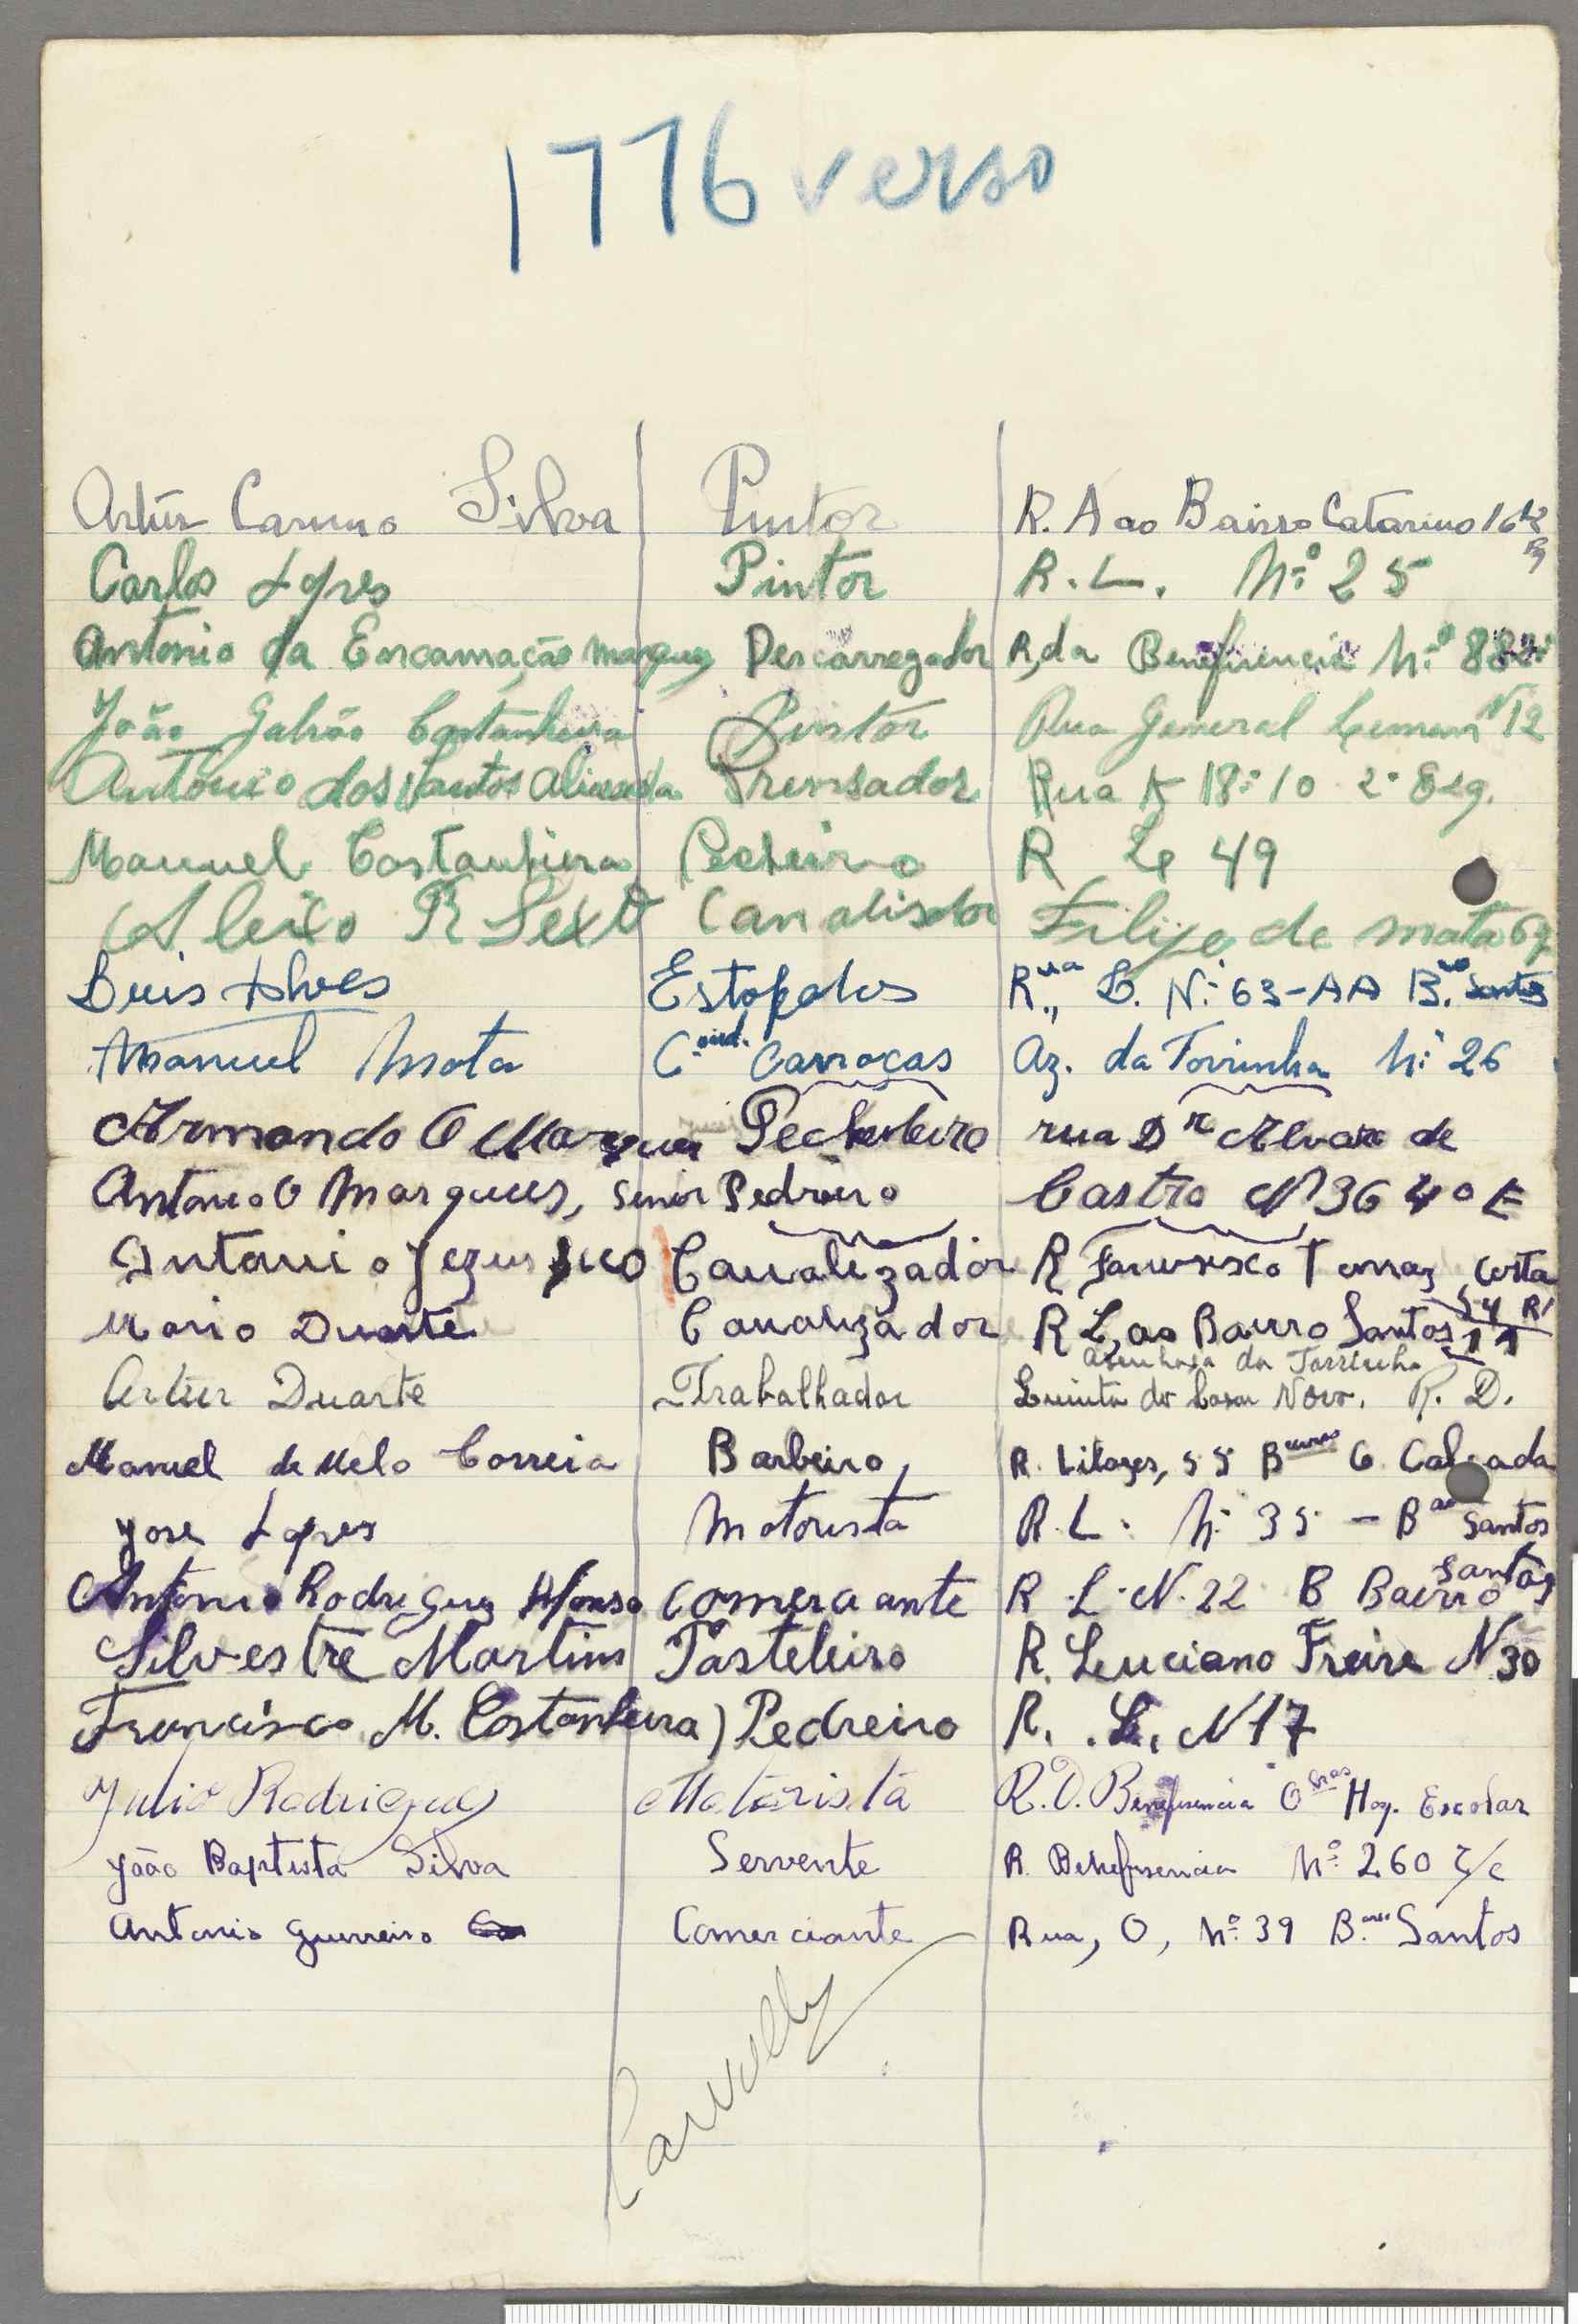 1776 verso
Artur Silva Pintor R. A ao Bairro Catarino 16
Carlos Lopes Pintor R. L. Nº 25
Antonio da Encarnação Marques Descarregador R, da Benefisencia Nº 88
João Galvão Castanheira Pintor Rua General Leman Nº 12
Antonio dos Santos Almeida Prensador Rua K 18:10 2º Esq.
Manuel Castanheira Pedreiro R L 49
Aleixo R Sexto Canalisador Filipe da mata 69
Luis Alves Estofador Rua L. Nº 63-AA B.ro Santos
Manuel Mota Carroças Az. da Torrinha Nº 26
Armando O Marques rua Dr Alvaro de
Antonio O Marques, Pedreiro Castro Nº 36 4º E
Antonio Jezus Canalizador R Fransisco Tomaz Costa
54 R/
Mario Duarte Canalizador R L, ao Bairro Santos 11
Azinhaga da Torrinha
Artur Duarte Trabalhador Quinta do Casal Novo. R. D.
Manuel de Melo Correia Barbeiro, R. Lilazes, 55 Bairro G. Calçada
Jose Lopes Motorista R. L. Nº 35 - Bro Santos
Santos
Antonio Rodrigues Afonso Comerciante R. L. N. 22 B Bairro
Silvestre Martins Pasteleiro R. Luciano Freire N 30
Francisco M. Castanheira) Pedreiro R. L. N 17
Julio Rodrigues Motorista R. D. Benefisencia Obras Hosp. Escolar
João Baptista Silva Servente R. Benefisencia Nº 260 r/c
Antonio Guerreiro Comerciante Rua, O, Nº 39 B. Santos